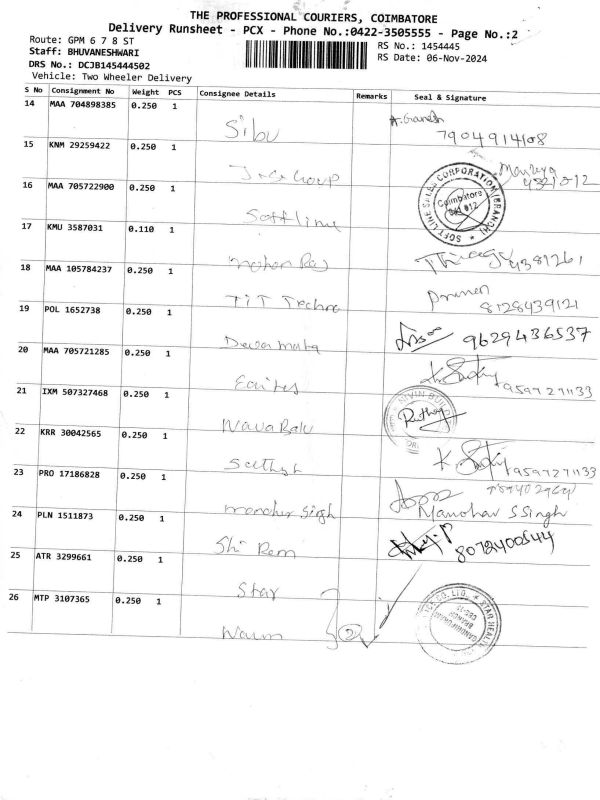 THE PROFESSIONAL COURIERS, COIMBATORE
Delivery Runsheet - PCX - Phone No.:0422-3505555 - Page No.:2
Route: GPM 6 7 8 ST
Staff: BHUVANESHWARI
DRS No.: DCJB145444502
Vehicle: Two Wheeler Delivery
RS No.: 1454445
RS Date: 06-Nov-2024
S No Consignment No Weight PCS Consignee Details Remarks Seal & Signature
14 MAA 704898385 0.250 1 Sibu A. Ganesh 7904914108
15 KNM 29259422 0.250 1
16 MAA 705722900 0.250 1 Softline SOFT-LINE SALES CORPORATION (BRANCH) Coimbatore 641 012
17 KMU 3587031 0.110 1 mohan Raj 4381261
18 MAA 105784237 0.250 1 TIT Techno 8128439121
19 POL 1652738 0.250 1 Devamata 9629436537
20 MAA 705721285 0.250 1 9597271133
21 IXM 507327468 0.250 1 NIVIN BUILD
22 KRR 30042565 0.250 1 Sathish 9597271133
23 PRO 17186828 0.250 1 manohar Singh Manohar S Singh
24 PLN 1511873 0.250 1 Shi Ram 8072400544
25 ATR 3299661 0.250 1 Star
26 MTP 3107365 0.250 1 2 CO. LTD. * STAR HEALTH BRANCH